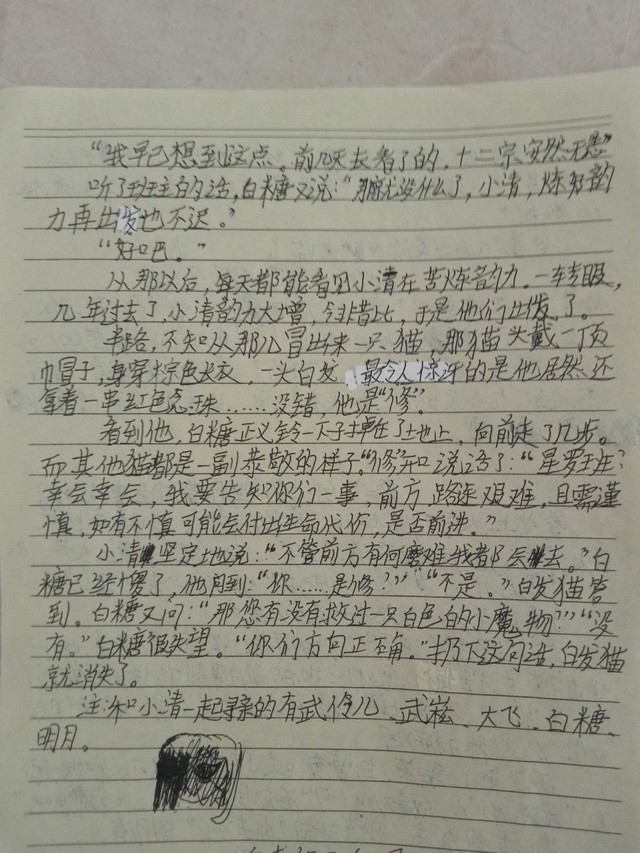 “我早已想到这点。前几天去看了的，十二宗安然无恙”
听了班主的话，白糖又说：“那就没什么了，小清，炼好韵
力再出发也不迟。”
“好吧。”
从那以后，每天都能看见小清在苦炼韵力。一转眼，
几年过去了，小清韵力大增，今非昔比，于是他们出发了。
半路，不知从那儿冒出来一只猫，那猫头戴一顶
巾冒子，身穿棕色长衣，一头白发，最令人惊讶的是他居然还
拿着一串红色念珠……没错，他是“修”。
看到他，白糖正义铃一下子掉在了地上，向前走了几步。
而其他猫都是一副恭敬的样子。“修”开口说话了：“星罗班？
幸会幸会，我要告知你们一事，前方路途艰难，且需谨
慎，如有不慎可能会付出生命代价，是否前进。”
小清坚定地说：“不管前方有何磨难我都会去。”白
糖已经傻了，他问到：“你……是修？”“不是。”白发猫答
到。白糖又问：“那您有没有救过一只白色的小魔物？”“没
有。”白糖很失望。“你们方向正确。”扔下这句话，白发猫
就消失了。
注：和小清一起寻亲的有武伶儿、武崧、大飞、白糖、
明月。